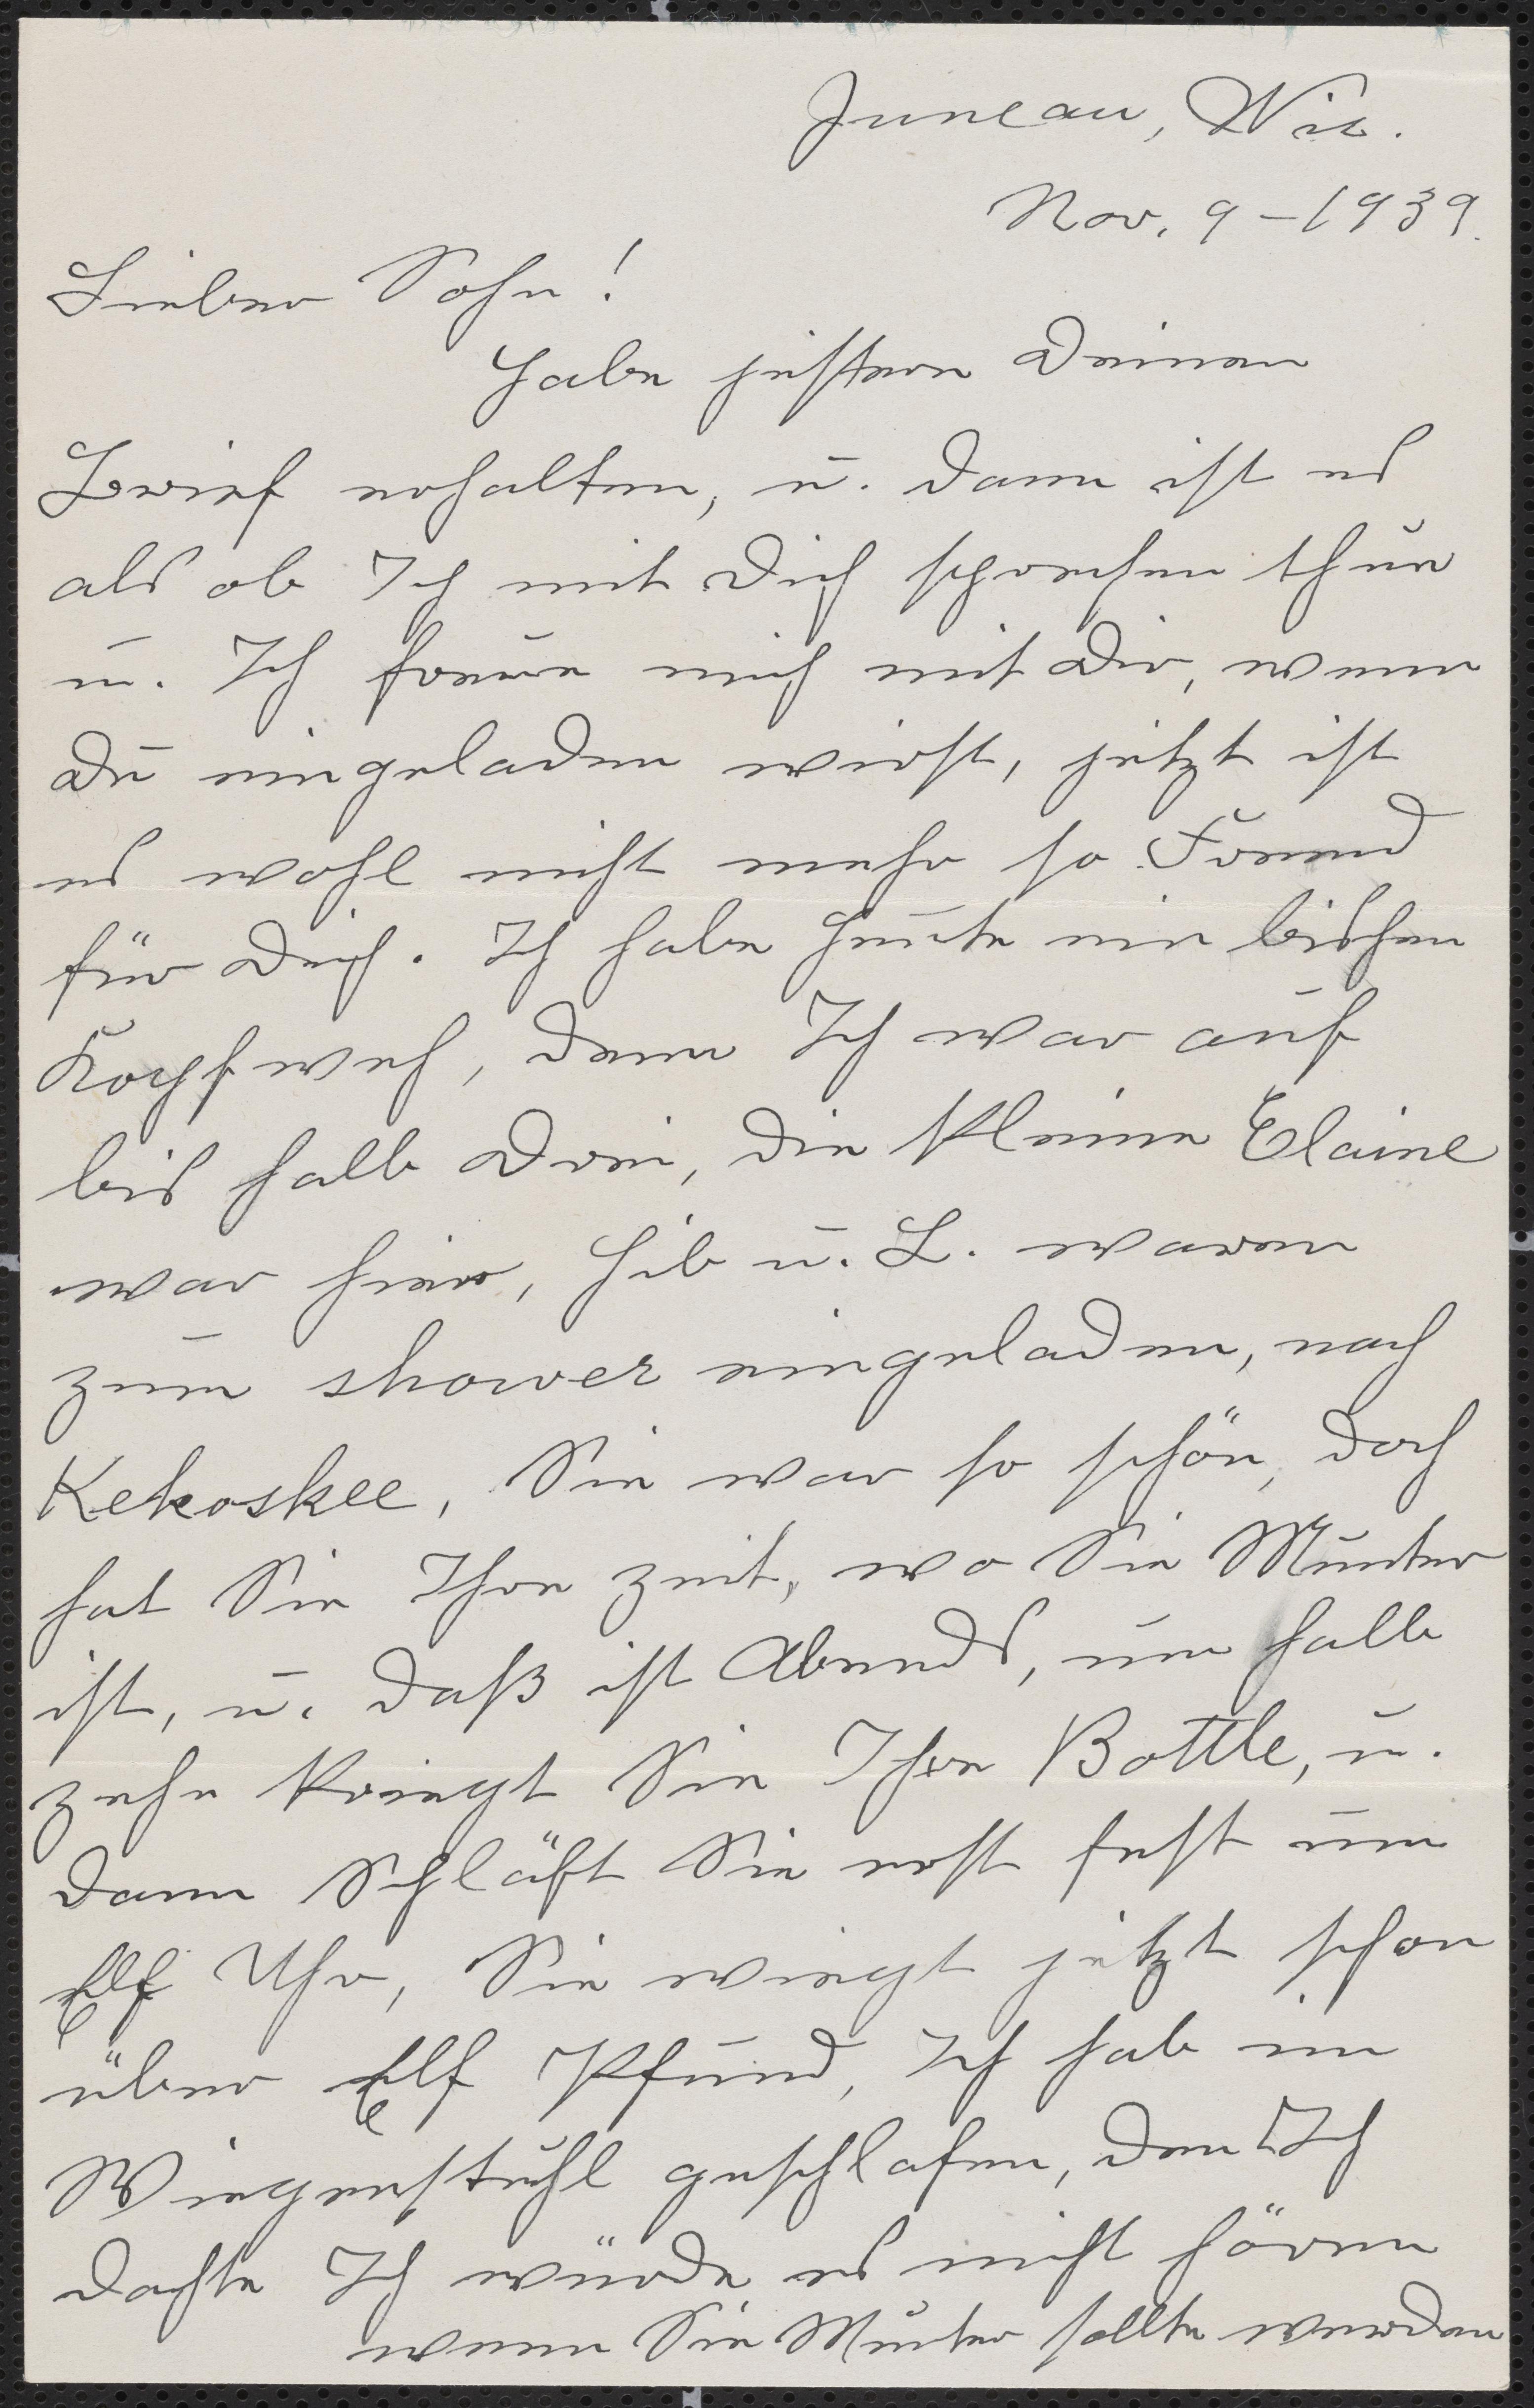 Juneau, Wis.
Nov. 9 – 1939.
Lieber Sohn!
Habe gestern Deinen
Brief erhalten, u. dann ist es
als ob Ich mit Dich sprechen thue
u. Ich freue mich mit Dir, wenn
Du eingeladen wirst, jetzt ist
es wohl nicht mehr so Fremd
für Dich. Ich habe Heute ein bischen
Kopfweh, denn Ich war auf
bis halb Drei, die kleine Elaine
war hier, Hib u. L. waren
zum shower eingeladen, nach
Kekoskee, Sie war so schön, doch
hat Sie Ihre zeit, wo Sie Munter
ist, u. daß ist Abends, um halb
zehn kriegt Sie Ihre Bottle, u.
dann Schläft Sie erst fest um
Elf Uhr, Sie wiegt jetzt schon
über Elf Pfund, Ich hab im
Wiegenstuhl geschlafen, den Ich
dachte Ich würde es nicht hören
wenn Sie Munter sollte werden